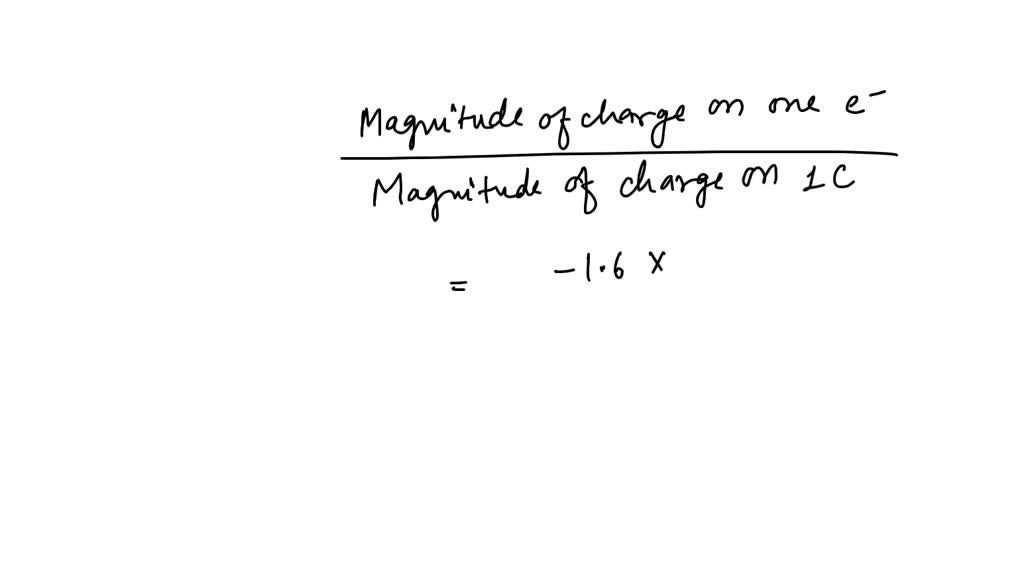 Magnitude of charge on one e⁻
Magnitude of charge on 1C
= -1.6 x